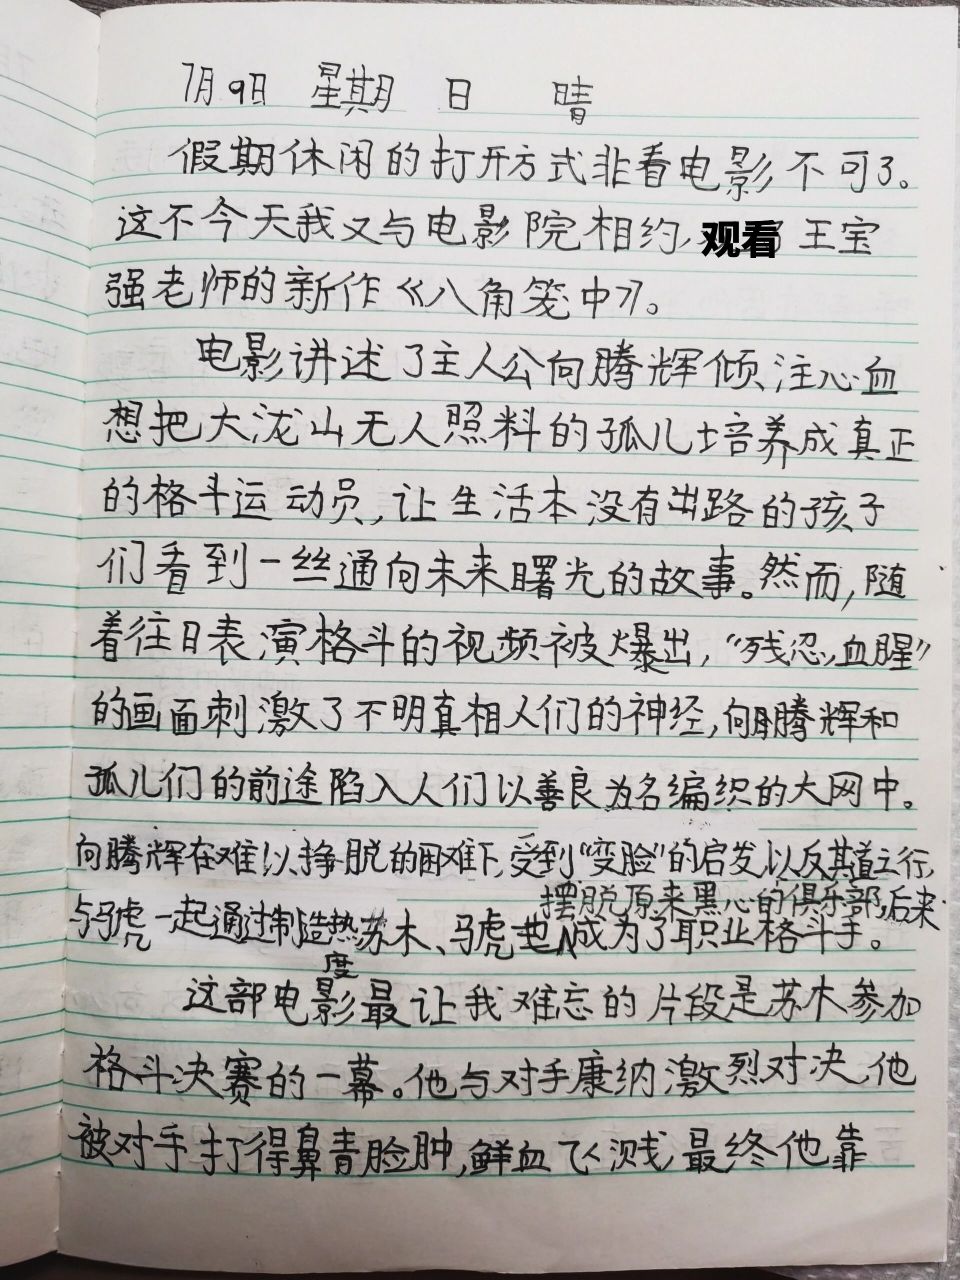 7月9日 星期日 晴
假期休闲的打开方式非看电影不可了。
这不今天我又与电影院相约,观看王宝
强老师的新作《八角笼中》。
电影讲述了主人公向腾辉倾注心血
想把大泷山无人照料的孤儿培养成真正
的格斗运动员,让生活本没有出路的孩子
们看到一丝通向未来曙光的故事。然而,随
着往日表演格斗的视频被爆出,“残忍,血腥”
的画面刺激了不明真相人们的神经,向腾辉和
孤儿们的前途陷入人们以善良为名编织的大网中。
向腾辉在难以挣脱的困难下,受到“变脸”的启发,以反其道之行,
摆脱原来黑心的俱乐部,后来
与马虎一起通过制造热度苏木、马虎也成为了职业格斗手。
这部电影最让我难忘的片段是苏木参加
格斗决赛的一幕。他与对手康纳激烈对决,他
被对手打得鼻青脸肿,鲜血飞溅,最终他靠